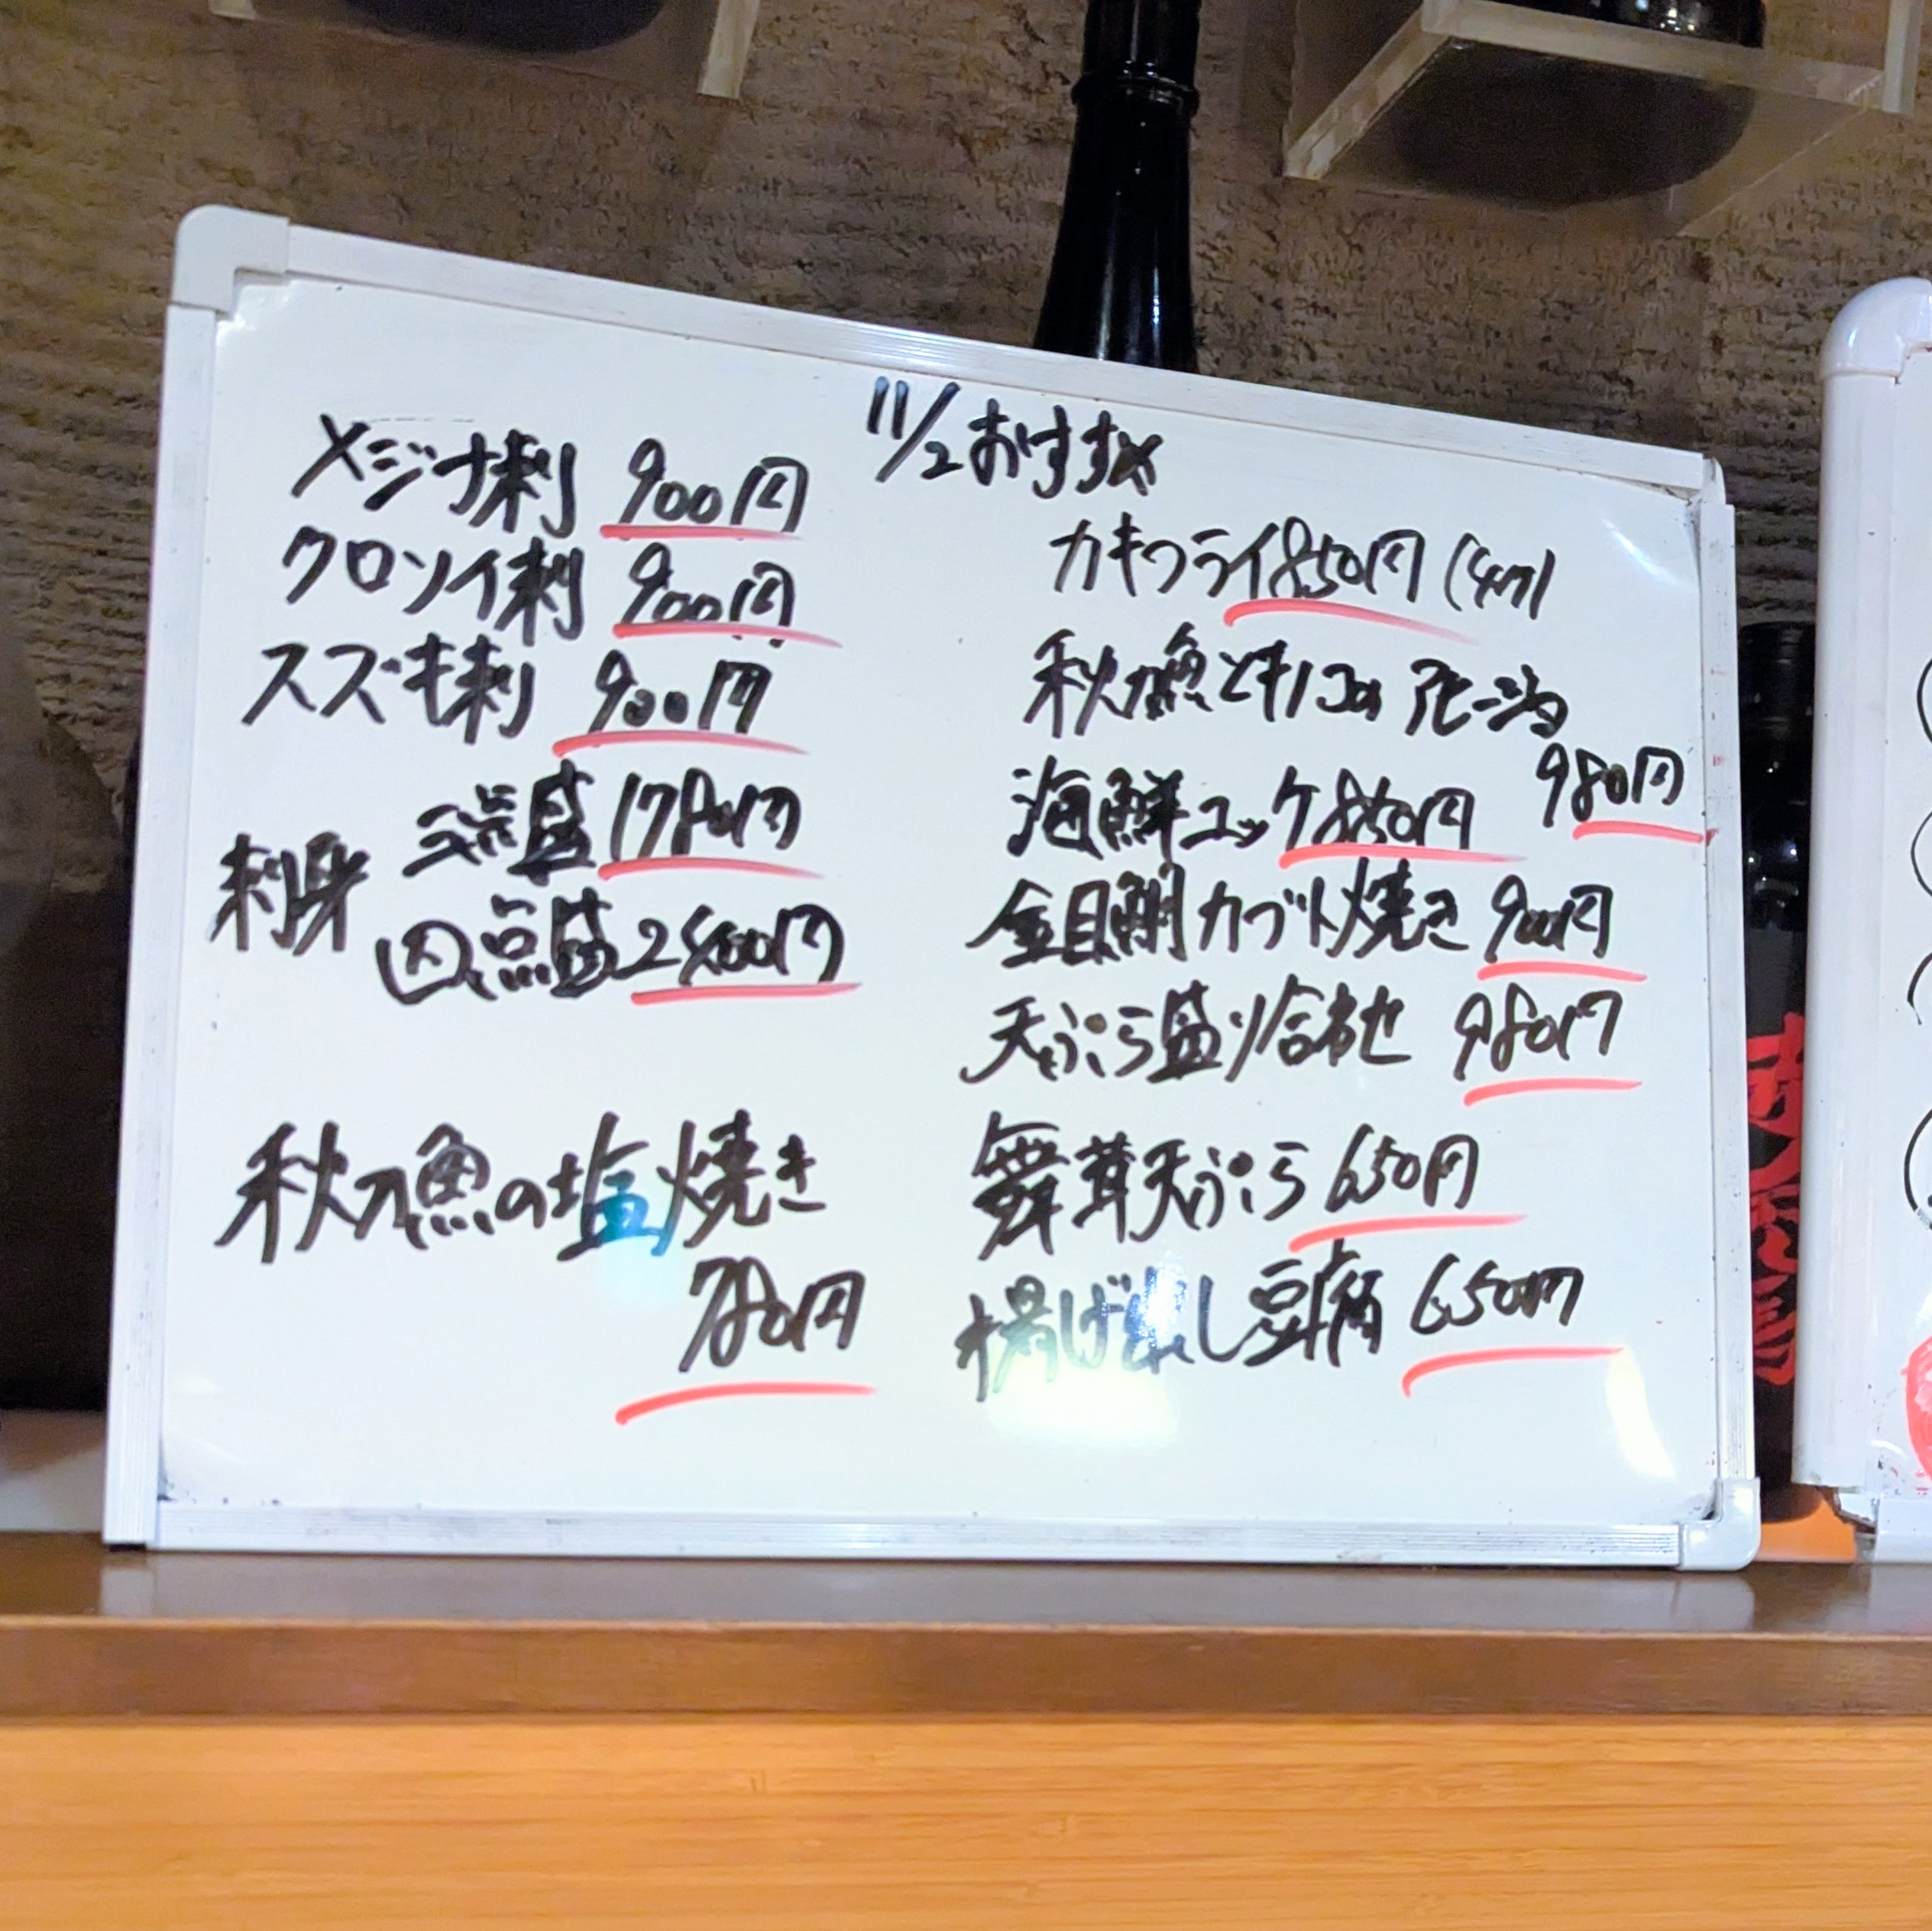 11/2おすすめ
メジナ刺 900円
クロソイ刺 900円
スズキ刺 900円
刺身
三点盛 1780円
四点盛 2400円
秋刀魚の塩焼き
780円
カキフライ850円 (4ケ)
秋刀魚とキノコのアヒージョ
980円
海鮮ユッケ850円
金目鯛カブト焼き 900円
天ぷら盛り合わせ 980円
舞茸天ぷら 650円
揚げ出し豆腐 650円